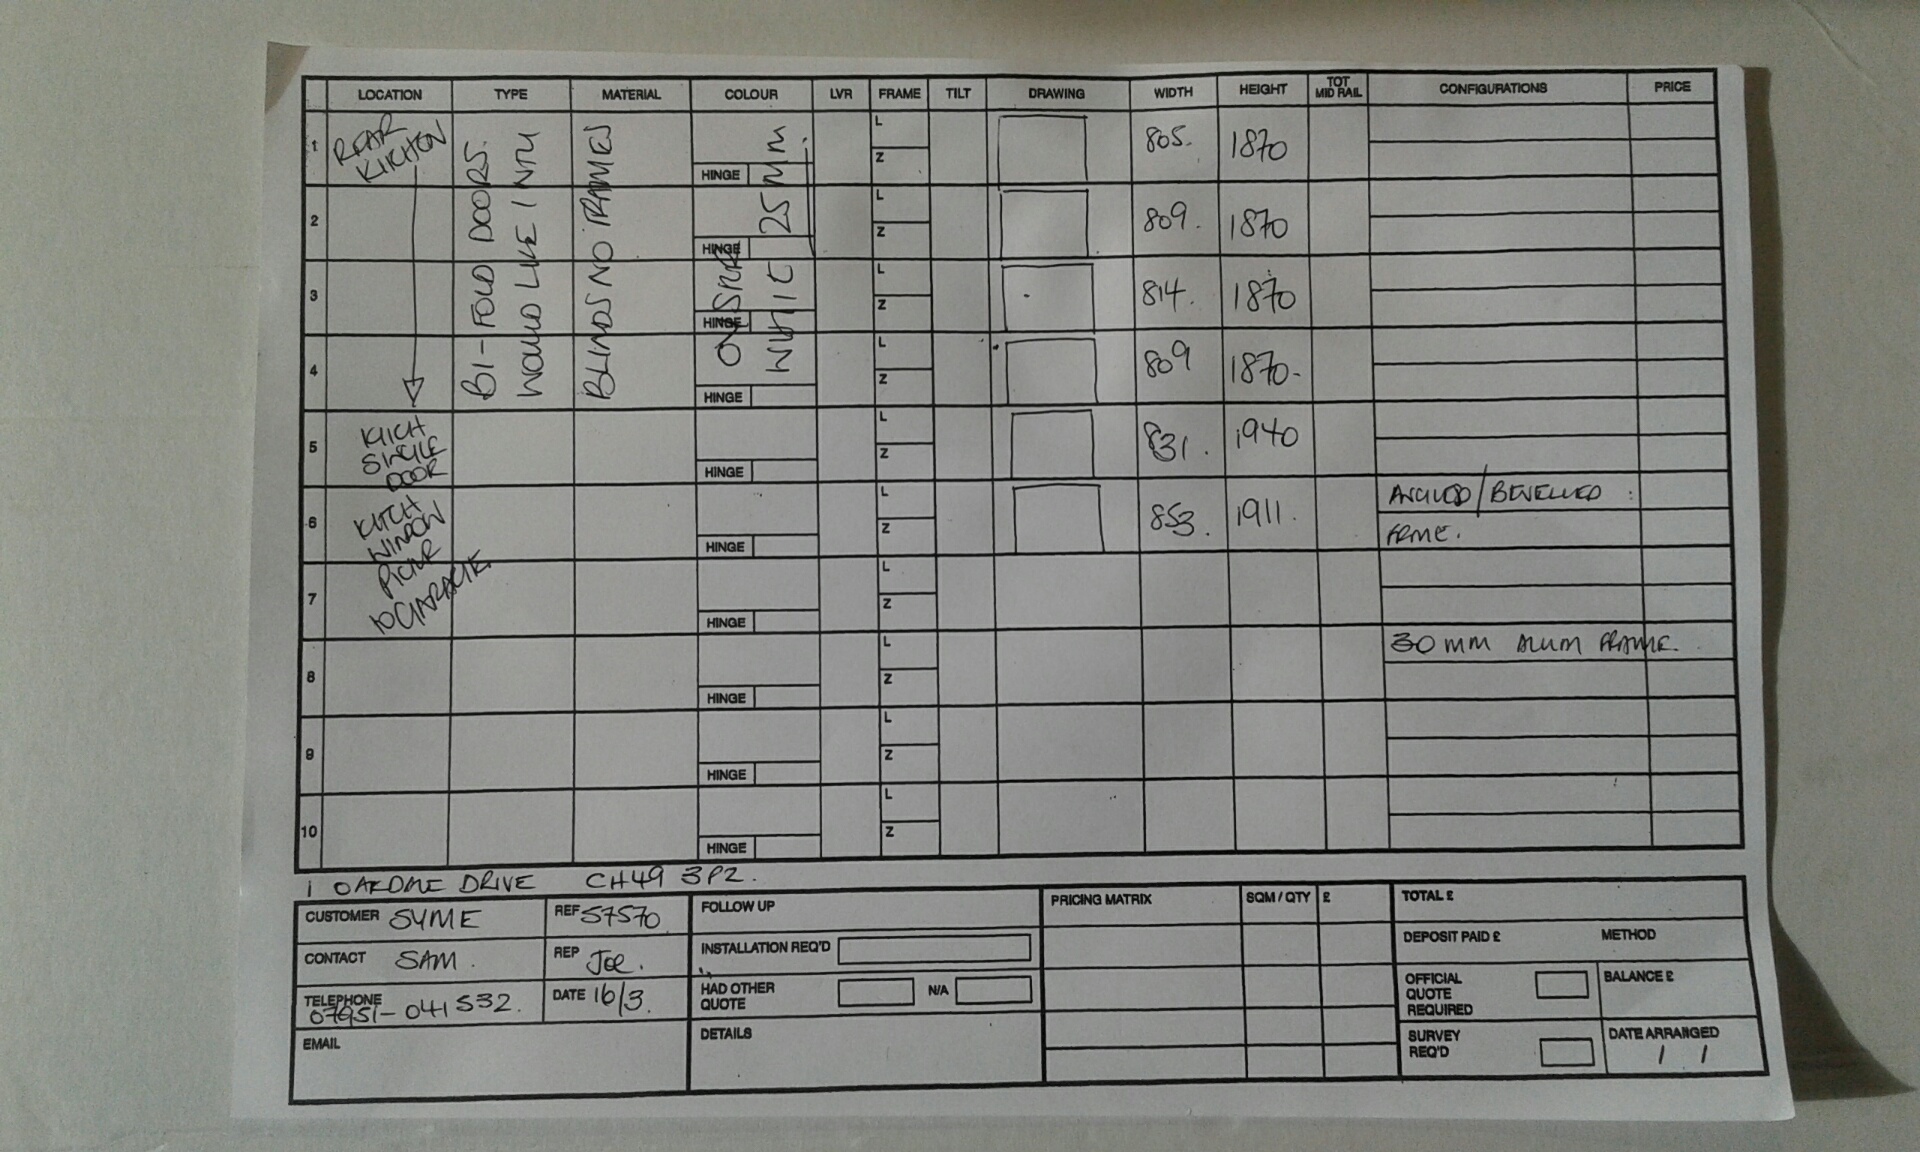 LOCATION TYPE MATERIAL COLOUR LVR FRAME TILT DRAWING WIDTH HEIGHT TOT MID RAIL CONFIGURATIONS PRICE
1 REAR KITCHEN HINGE L Z 805. 1870
2 HINGE L Z 809. 1870
3 HINGE L Z 814. 1870
4 HINGE L Z 809 1870-
BI-FOLD DOORS.
WOULD LIKE INTU
BLINDS NO FRAMES
WHITE 25MM.
5 KITCH SINGLE DOOR HINGE L Z 831. 1940
6 KITCH WINDOW HINGE L Z 853. 1911. ANGLED/BEVELLED
FRME.
7 HINGE L Z
8 HINGE L Z 30MM ALUM FRAME.
9 HINGE L Z
10 HINGE L Z
1 OAKDALE DRIVE CH49 3PZ.
CUSTOMER SYME REF 57570
CONTACT SAM. REP JOE.
TELEPHONE 07951-041532. DATE 16/3.
EMAIL
FOLLOW UP
INSTALLATION REQ'D
HAD OTHER QUOTE N/A
DETAILS
PRICING MATRIX SQM / QTY £
TOTAL £
DEPOSIT PAID £ METHOD
OFFICIAL QUOTE REQUIRED BALANCE £
SURVEY REQ'D DATE ARRANGED
/ /